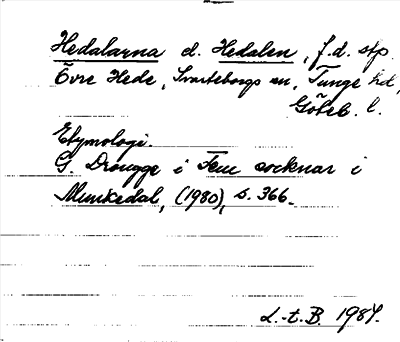 Hedalarna el. Hedalen, f.d. stp.
Övre Hede, Svarteborgs sn, Tunge hd,
Göteb. l.
Etymologi.
G. Drougge i Fem socknar i
Munkedal, (1980), s. 366.
L.-t. B. 1984.